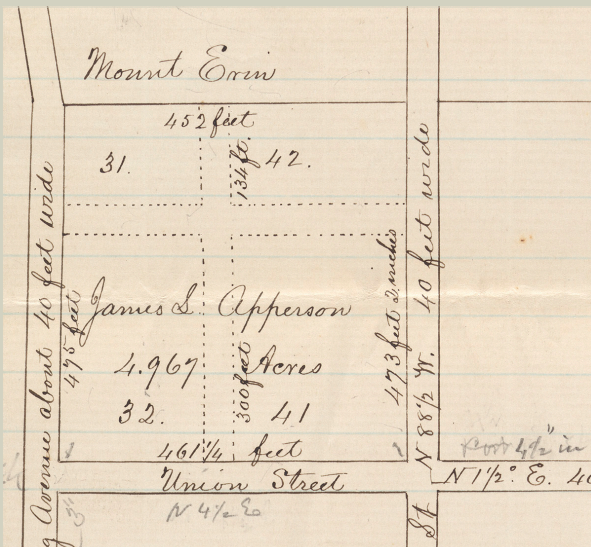 Mount Erin
452 feet
31.
134 ft.
42.
g Avenue about 40 feet wide
475 feet
James L. Apperson
4.967 Acres
32.
300 feet
41
461 1/4 feet
473 feet 2 inches
N 88 1/2 W. 40 feet wide
St
Union Street
N 4 1/2 E
4 1/2" in
N 1 1/2° E. 40
3"